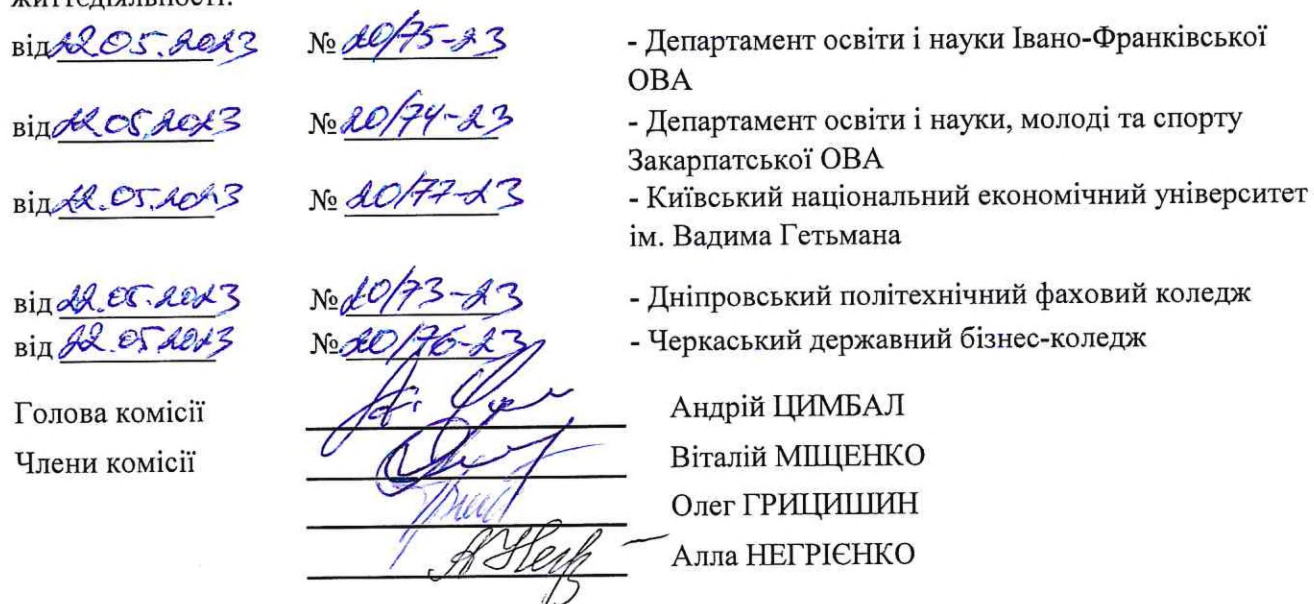 життєдіяльності.
від 22.05.2023 № 20/75-23 - Департамент освіти і науки Івано-Франківської
ОВА
від 22.05.2023 № 20/74-23 - Департамент освіти і науки, молоді та спорту
Закарпатської ОВА
від 22.05.2023 № 20/77-23 - Київський національний економічний університет
ім. Вадима Гетьмана
від 22.05.2023 № 20/73-23 - Дніпровський політехнічний фаховий коледж
від 22.05.2023 № 20/76-23 - Черкаський державний бізнес-коледж
Голова комісії Андрій ЦИМБАЛ
Члени комісії Віталій МІЩЕНКО
Олег ГРИЦИШИН
Алла НЕГРІЄНКО